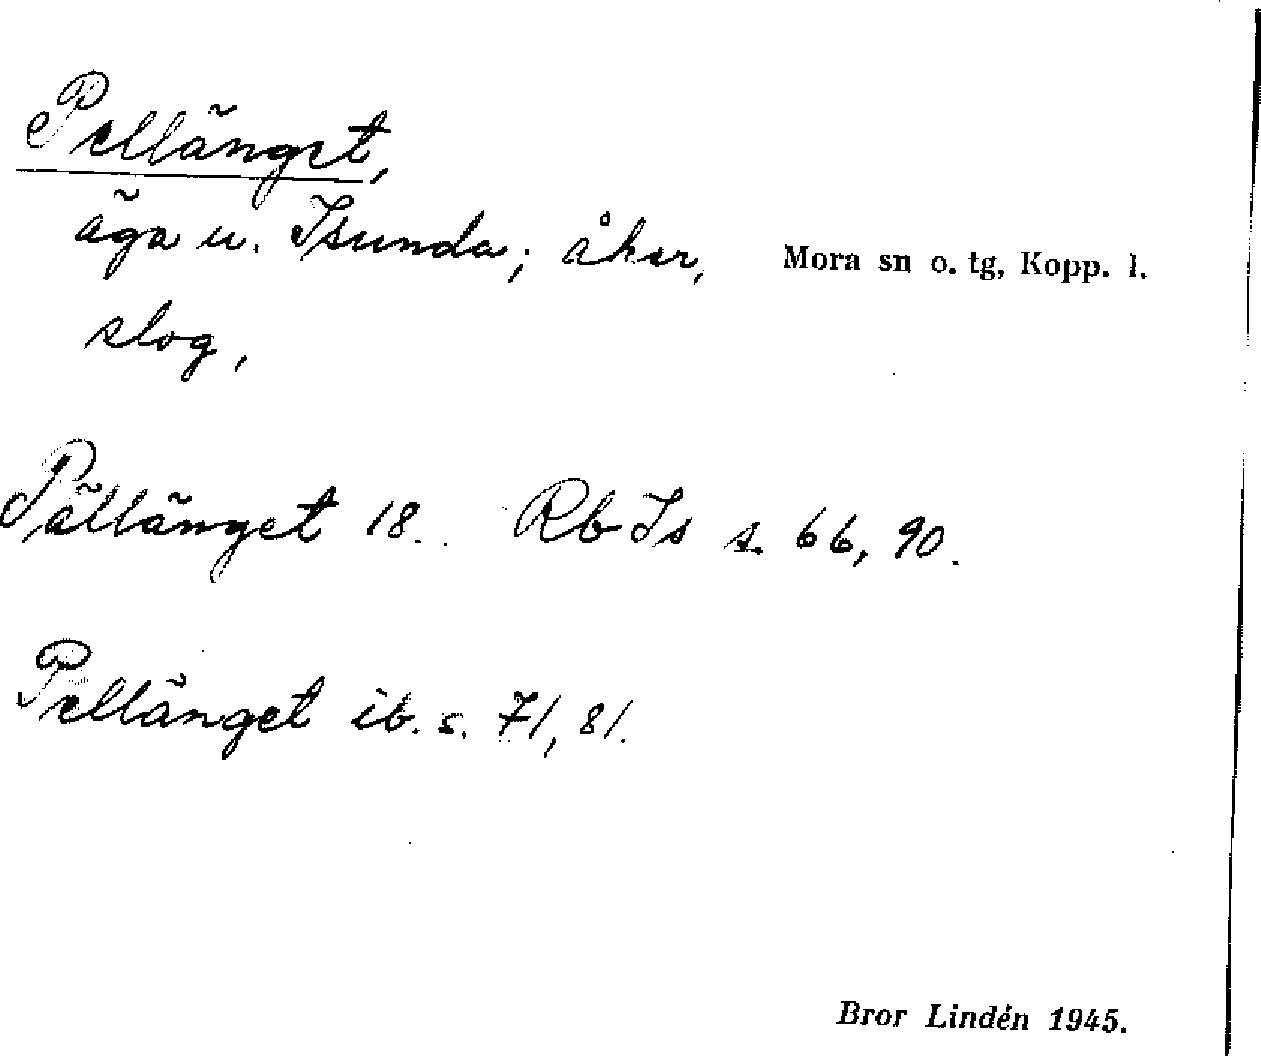 Pellänget,
äga u. Isunda; åker, Mora sn o. tg, Kopp. l.
slog,
Pällänget 18. Rb Is s. 66, 90.
Pellänget ib. s. 71, 81.
Bror Lindén 1945.